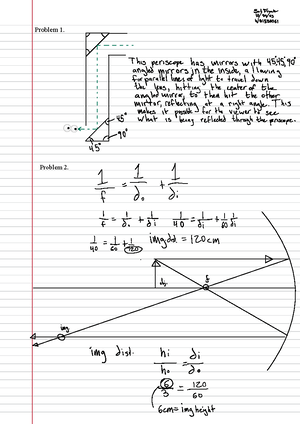 Problem 1.
This periscope has mirrors with 45,45,90°
angled mirrors in the inside, allowing
for parallel lines of light to travel down
the lens, hitting the center of the
angled mirror, to then hit the other
mirror, reflecting at a right angle. This
makes it possible for the viewer to see
what is being reflected through the periscope.
45°
90°
45°
Problem 2.
1/f = 1/do + 1/di
1/f = 1/do + 1/di 1/40 = 1/di + 1/60
1/40 = 1/60 + 1/120 img dist = 120cm
do
f
img
img dist.
hi/ho = di/do
6/3 = 120/60
6cm = img height